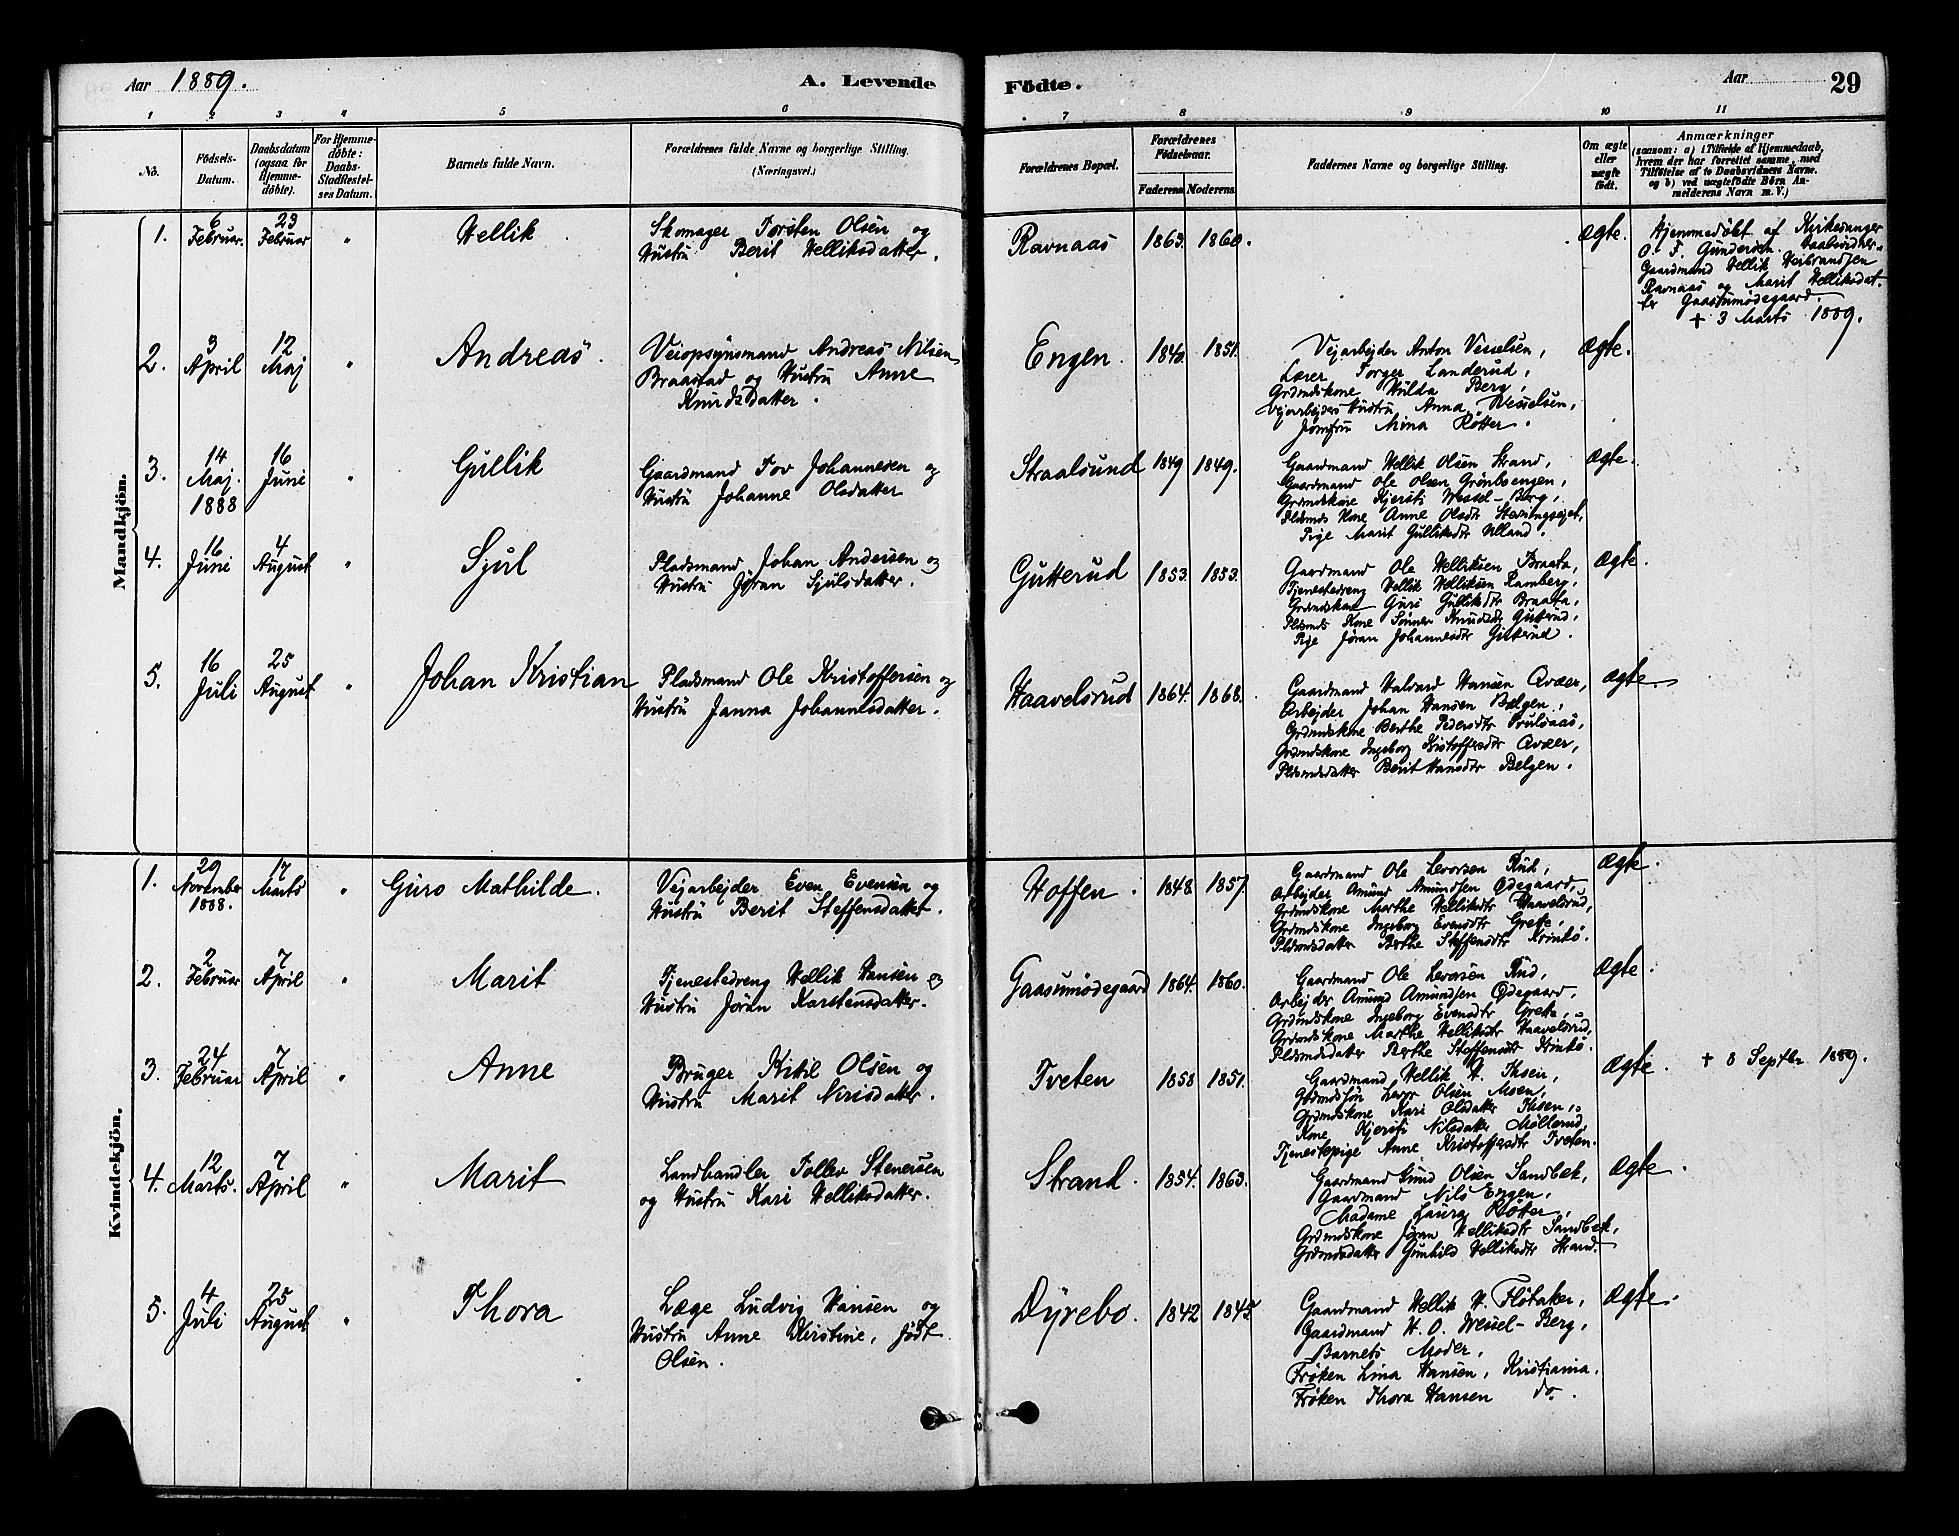 Aar 1889.
A. Levende Födte.
Aar
29
1 2 3 4 5 6 7 8 9 10 11
No.
Födsels-Datum.
Daabsdatum (ogsaa for Hjemme-döbte).
For Hjemme-döbte: Daabs-Stadfæstel-ses Datum.
Barnets fulde Navn.
Forældrenes fulde Navne og borgerlige Stilling. (Næringsvei.)
Forældrenes Bopæl.
Forældrenes Födselsaar.
Faderens. Moderens.
Faddernes Navne og borgerlige Stilling.
Om ægte eller uægte födt.
Anmærkninger
(saasom: a) i Tilfælde af Hjemmedaab,
hvem der har forrettet samme, med
Tilföielse af to Daabsvidners Navne.
og b) ved uægtefödte Börn An-
melderens Navn m. V.)
Mandkjön.
1.
6 Februar.
23 Februar
"
Hellik
Skomager Torsten Olsen og
Hustru Berit Helliksdatter.
Ravnaas
1863. 1860.
Ægte.
Hjemmedøbt af Kirkesanger
O. F. Gundersen. Daabsvidner:
Gaardmand Hellik Herbrandsen
Ravnaas og Marit Helliksdat-
ter Gaasumødegaard.
† 3 Marts 1889.
2.
3 April
12 Maj
"
Andreas.
Veiopsynsmand Andreas Nilsen
Braastad og Hustru Anne
Knudsdatter.
Engen.
1840. 1851.
Vejarbejder Anton Vesselsen,
Lærer Torger Landerud,
Grdmdskone Hilda Berg,
Vejarbejders Hustru Anna Wesselsen,
Jomfru Mina Røtter.
Ægte.
3.
14 Maj. 1888
16 Juni
"
Gullik
Gaardmand Tov Johannesen og
Hustru Johanne Olsdatter
Straalsund
1849 1849.
Gaardmand Hellik Olsen Strand,
Gaardmand Ole Olsen Grønboengen,
Grdmdskone Kjersti Wessel-Berg,
Pldsmds Kone Anne Olsdtr
Pige Marit Gulliksdtr Ulland.
Ægte.
4.
16 Juni
4 August
"
Sjul
Pladsmand Johan Andersen og
Hustru Jøran Sjulsdatter.
Gutterud
1853. 1853.
Gaardmand Ole Helliksen Braata,
Tjenestedreng Hellik Helliksen Ramberg,
Grdmdskone Guri Gulliksdtr Braata,
Pldsmds Kone Sønner Knudsdtr Gutterud,
Pige Jøran Johannesdtr Gutterud.
Ægte.
5.
16 Juli
25 August
"
Johan Kristian
Pladsmand Ole Kristoffersen og
Hustru Janna Johannesdatter.
Haavelsrud
1864. 1868.
Gaardmand Halvard Hansen Qvær,
Arbejder Johan Hansen Bølgen,
Grdmdskone Berthe Pedersdtr
Grdmdskone Ingeborg Kristoffersdtr Qvær,
Pldsmdsdatter Berit Hansdtr Bølgen.
Ægte.
Kvindekjön.
1.
29 November 1888.
17 Marts
"
Guro Mathilde.
Vejarbejder Even Evensen og
Hustru Berit Steffensdatter.
Hoffen.
1848. 1857.
Gaardmand Ole Levorsen Rud,
Arbejder Amund Amundsen Ødegaard,
Grdmdskone Marthe Helliksdtr Haavelsrud,
Grdmdskone Ingeborg Evensdtr Grette,
Pldsmdsdatter Berthe Steffensdtr
Ægte.
2.
2 Februar
7 April
"
Marit
Tjenestedreng Hellik Hansen og
Hustru Jøran Karstensdatter.
Gaasumødegaard
1864. 1860.
Gaardmand Ole Levorsen Rud,
Arbejder Amund Amundsen Ødegaard,
Grdmdskone Ingeborg Evensdtr Grette,
Grdmdskone Marthe Helliksdtr Haavelsrud,
Pldsmdsdatter Berthe Steffensdtr
Ægte.
3.
24 Februar
7 April
"
Anne
Bruger Kitil Olsen og
Hustru Marit Nirisdatter.
Tveten
1858 1851.
Gaardmand Hellik H. Thsen,
Grdmdssøn Levor Olsen Moen,
Grdmdskone Kari Olsdatter Thsen,
Kone Kjersti Nilsdatter Møllerud,
Tjenestepige Anne Kristoffersdtr Tveten.
Ægte.
† 8 Septbr. 1889.
4.
12 Marts.
7 April
"
Marit
Landhandler Tollev Stenersen
og Hustru Kari Helliksdatter.
Strand.
1854. 1863.
Gaardmand Gund Olsen Sandbæk,
Gaardmand Nils Engen,
Madame Laura Røtter,
Grdmdskone Jøran Helliksdtr Sandbæk,
Grdmdsdatter Gunhild Helliksdtr Strand.
Ægte.
5.
4 Juli
25 August
"
Thora
Læge Ludvig Hansen og
Hustru Anne Kirstine, født
Olsen.
Dyrebo.
1842 1845
Gaardmand Hellik H. Fløtaker,
Gaardmand H. O. Wessel-Berg,
Barnets Moder,
Frøken Lina Hansen, Kristiania.
Frøken Thora Hansen do.
Ægte.